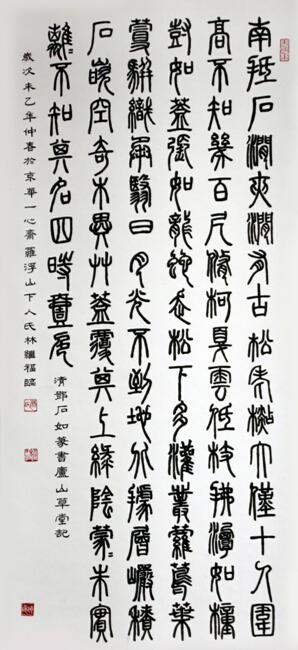 南抵石澗夾澗有古松老檆大僅十人圍
高不知幾百尺脩柯戛雲低枝拂潭如橦
尌如蓋張如龍蛇走松下多灌叢蘿蔦葉
蔓駢織承翳日月光不到地北據層巖積
石嵌空奇木異艸蓋覆其上綠陰蒙〻朱實
離〻不知其名四時壹色
清鄧石如篆書廬山草堂記
歲次未乙年仲春於京華一心齋羅浮山下人氏林繼福臨